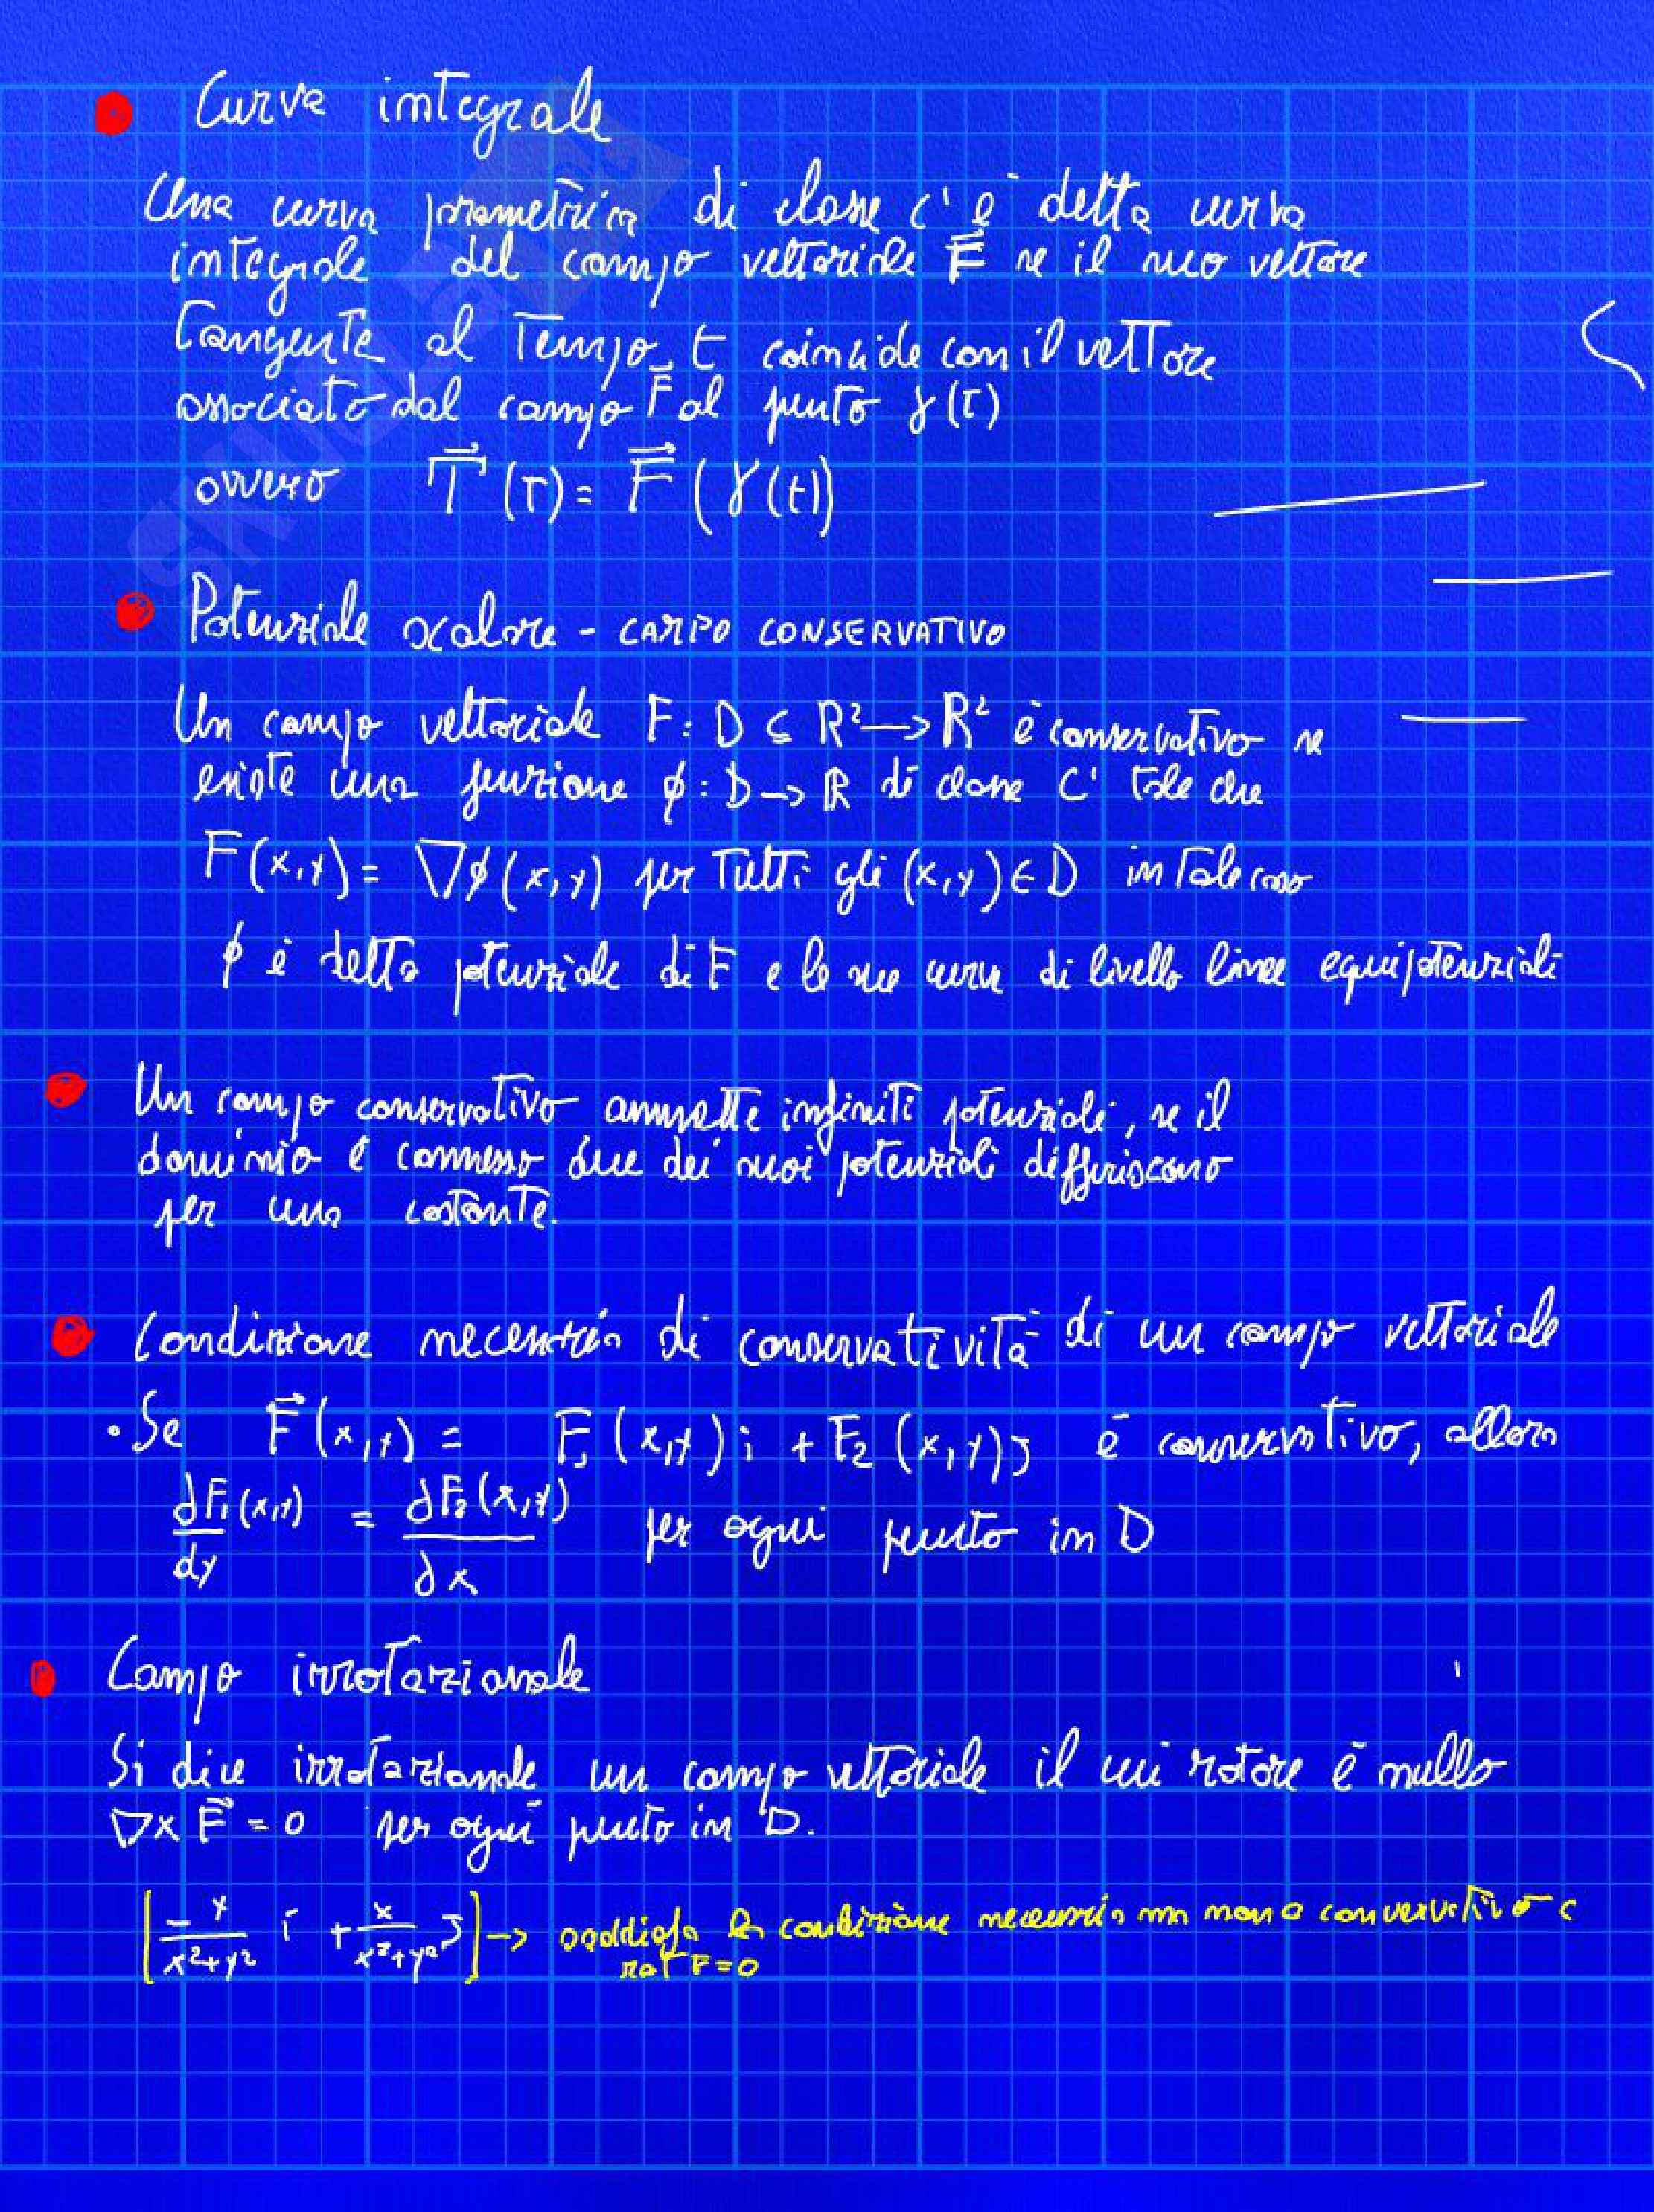 Curva integrale
Una curva parametrica di classe C' è detta curva
integrale del campo vettoriale F se il suo vettore
tangente al tempo t coincide con il vettore
associato dal campo F al punto γ(t)
ovvero T(t) = F(γ(t))
Potenziale scalare - CAMPO CONSERVATIVO
Un campo vettoriale F: D ⊆ R² → R² è conservativo se
esiste una funzione ϕ: D → R di classe C' tale che
F(x,y) = ∇ϕ(x,y) per tutti gli (x,y) ∈ D in tale caso
ϕ è detta potenziale di F e le sue curve di livello linee equipotenziali
Un campo conservativo ammette infiniti potenziali, se il
dominio è connesso due dei suoi potenziali differiscono
per una costante.
Condizione necessaria di conservatività di un campo vettoriale
• Se F(x,y) = F₁(x,y) i + F₂(x,y) j è conservativo, allora
∂F₁(x,y)/dy = ∂F₂(x,y)/∂x per ogni punto in D
Campo irrotazionale
Si dice irrotazionale un campo vettoriale il cui rotore è nullo
∇x F = 0 per ogni punto in D.
[-y/x²+y² i + x/x²+y² j] → soddisfa la condizione necessaria ma non è conservativo
rot F = 0
SKUOLA